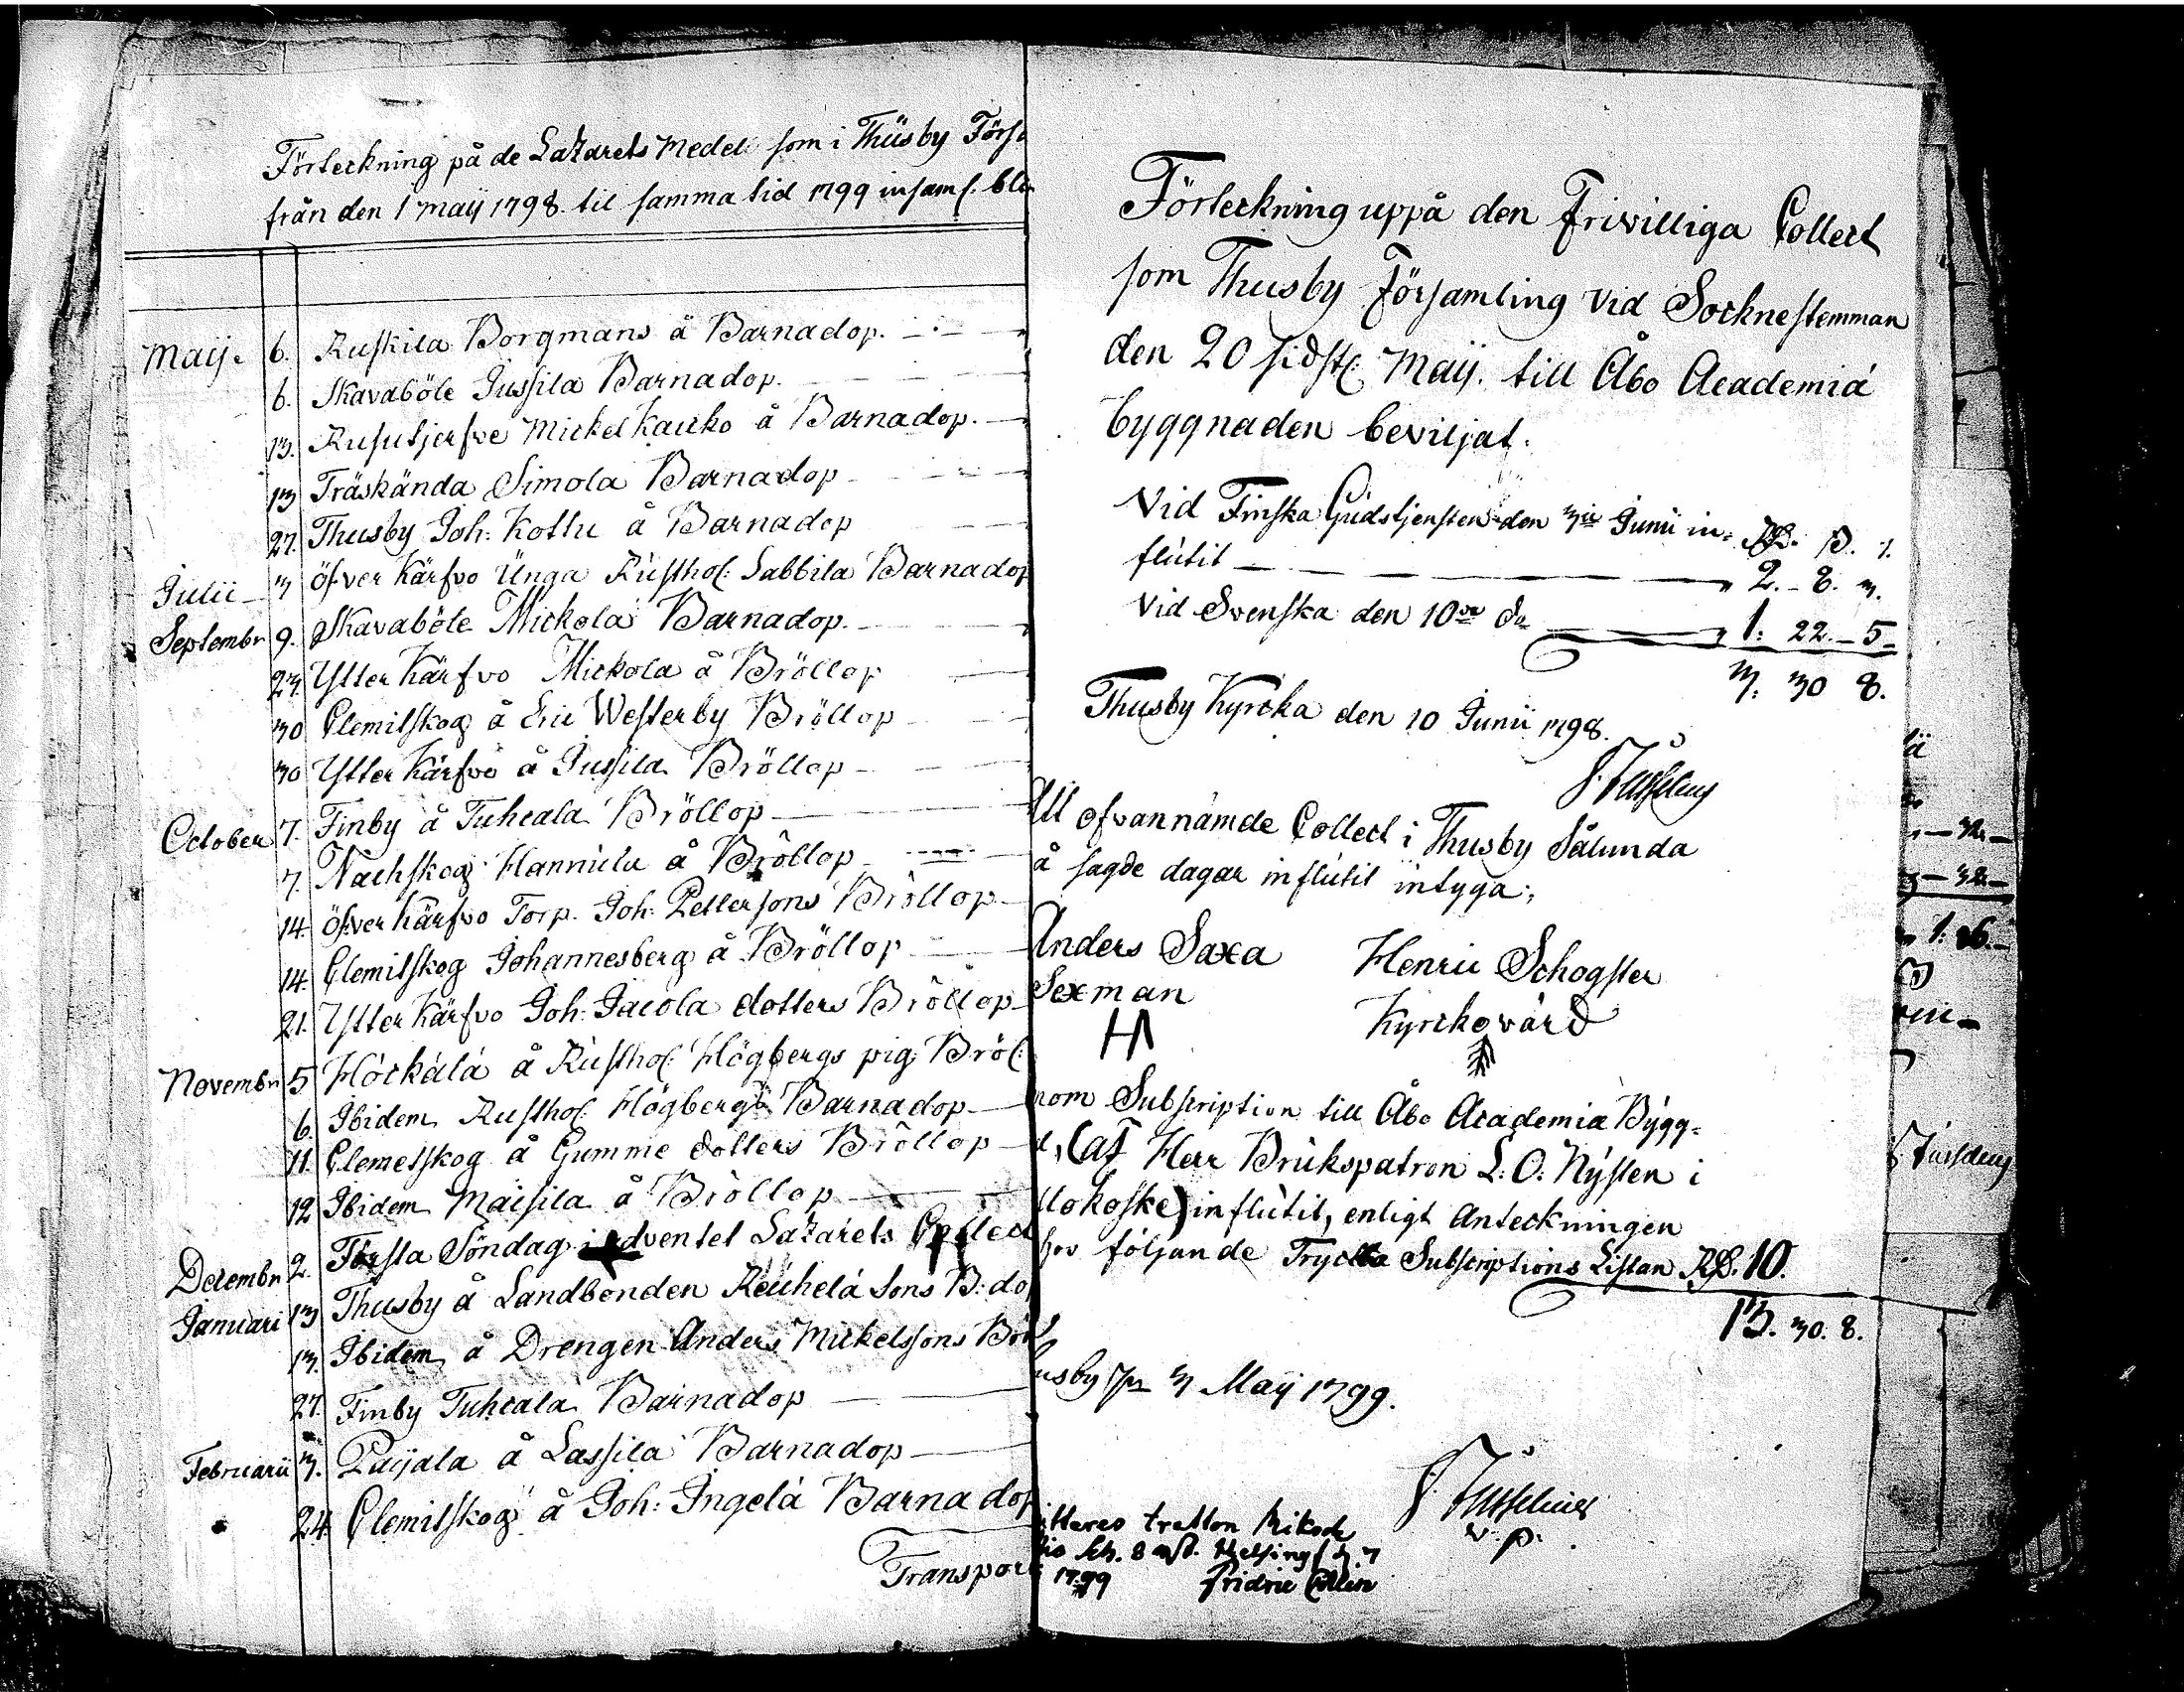 Förteckning på de Lazarets Medel som i Thusby Förs
från den 1 Maij 1798. til samma tid 1799 insaml. bli
Maij. 6. Ruskila Borgmans å Barnadop.
6. Skavaböle Jussila Barnadop.
13. Rusutjerfve Mickel Kauko å Barnadop.
13 Träskända Simola Barnadop
27. Thusby Joh: Kottu å Barnadop
Julii 3 öfver Kärfvo Unga Rusthol: Labbila Barnadop
Septembr 9. Skavaböle Mickola Barnadop.
23. Ytter Kärfvo Mickola å Bröllop
30 Clemitskog å Eric Westerby Bröllop
30 Ytter Kärfvo å Jussila Bröllop
October 7. Finby å Tuhcala Bröllop
7. Nachskog Hannula å Bröllop
14. öfver Kärfvo Torp. Joh: Pettersons Bröllop
14. Clemitskog Johannesberg å Bröllop
21. Ytter Kärfvo Joh: Jacola dotters Bröllop
Novembr 5 Höckälä å Rusthol: Högbergs pig. Bröl:
6. Ibidem Rusthol: Högbergs Barnadop
11. Clemetskog å Gumme dotters Bröllop
12 Ibidem Maisila å Bröllop
Decembr 2. Första Söndag i adventet Lazarets Collect
Januari 13 Thusby å Landbonden Reuhelä Sons B: do
13. Ibidem å Drengen Anders Mickelssons Bröl
27. Finby Tuhcala Barnadop
Februarii 3. Paijala å Lassila Barnadop
24. Clemitskog å Joh: Ingelä Barnadop
Transport
Förteckning uppå den Frivilliga Collect
som Thusby Församling vid Socknestemman
den 20 sidstl. Maij. till Åbo Academiä
byggnaden beviljat.
Vid Finska Gudstjensten den 3ie Junii in= Rd. ß. r.
flutit 2.-8. 3.
Vid Svenska den 10de do 1: 22.-5-
3: 30 8.
Thusby Kyrcka den 10 Junii 1798.
All ofvannämde Collect i Thusby Sålunda
å sagde dagar influtit intyga;
Anders Saxa Henric Schogster
Sexman Kyrckovärd
nom Subscription till Åbo Academiä Bygg=
d, (af Herr Brukspatron L: O: Nysten i
llokoske) influtit, enligt Anteckningen
hos följande Tryckta Subscriptions Listan Rd. 10.
13. 30. 8.
usby Pr 3 Maij 1799.
v. p.
itteras tretton Riksd
tio sch. 8 rst. Helsingf. d. 7
1799 Fridric